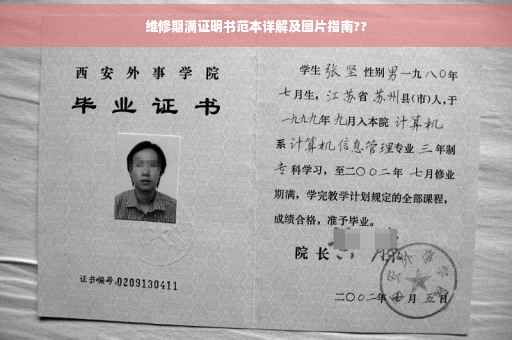 维修期满证明书范本详解及图片指南??
西安外事学院
毕业证书
证书编号:0209130411
学生 张坚 性别 男 一九八〇年
七月生，江苏省 苏州 县(市)人，于
一九九九年 九月入本院 计算机
系 计算机信息管理专业 三 年制
专 科学习，至二〇〇二年 七月修业
期满，学完教学计划规定的全部课程，
成绩合格，准予毕业。
院长
二〇〇二年 月 五日